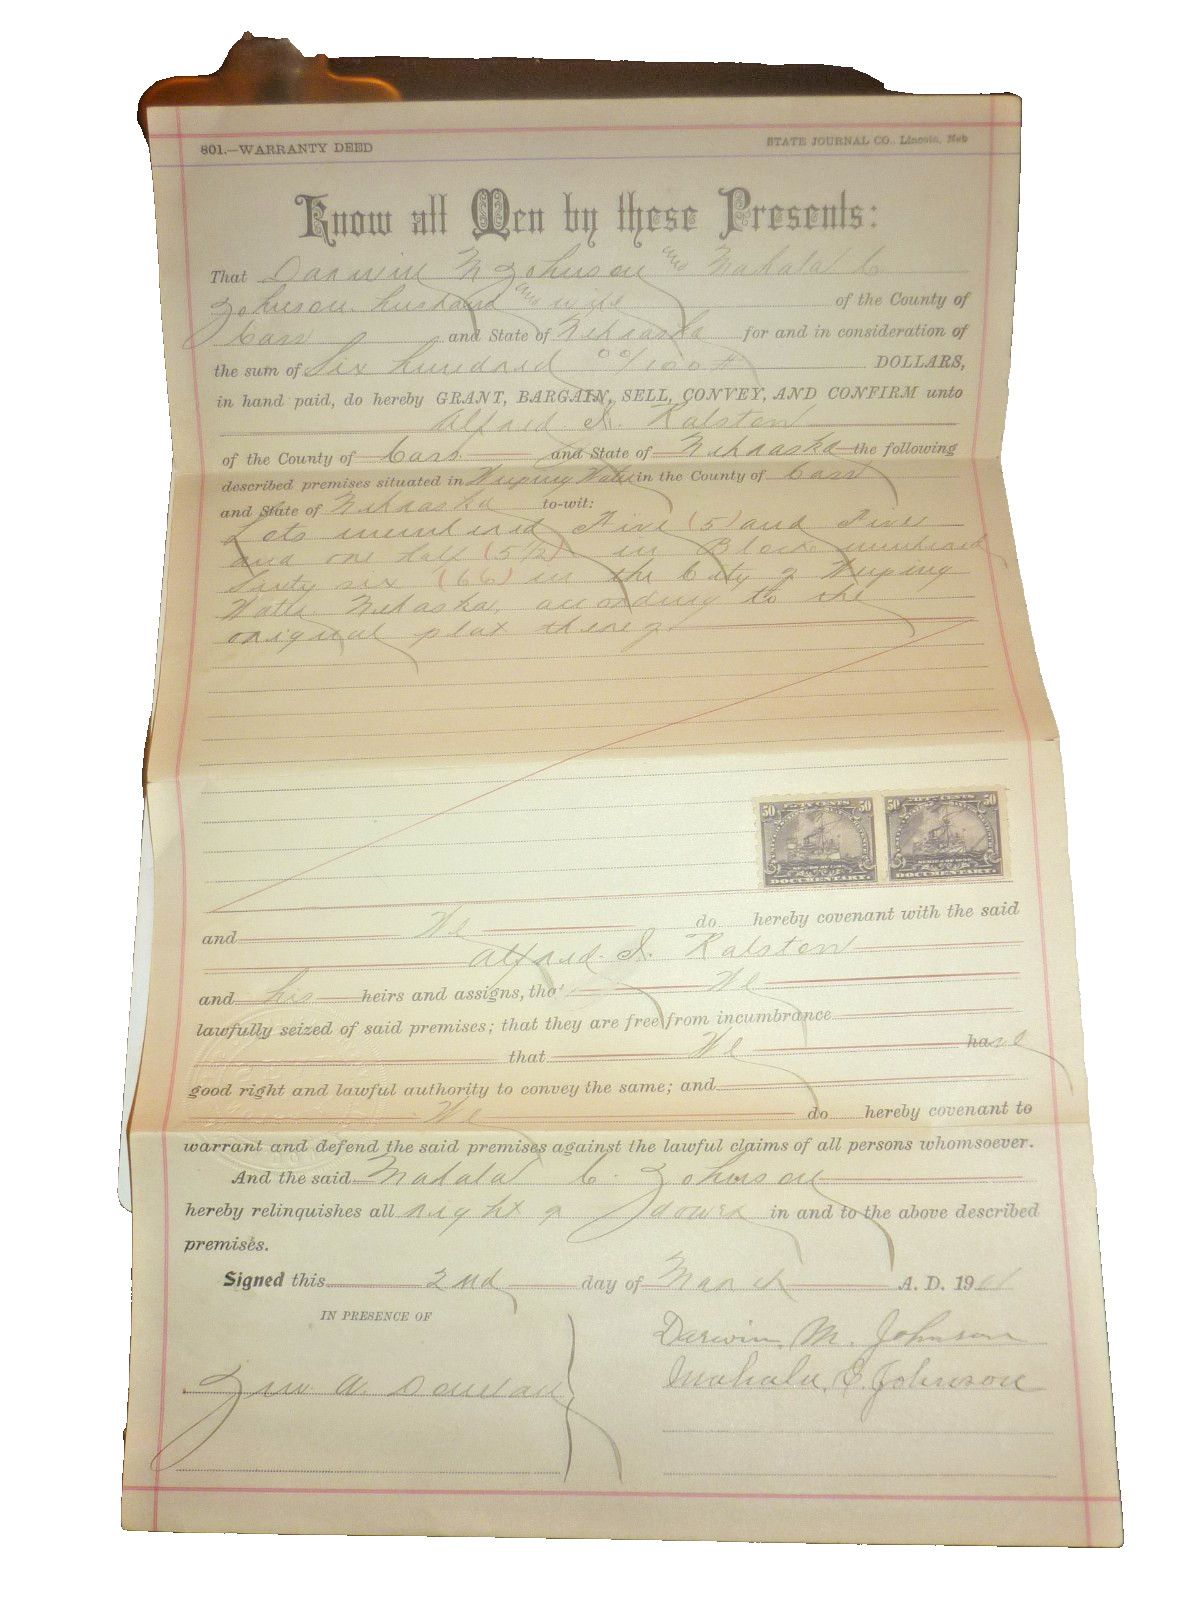 801.—WARRANTY DEED
STATE JOURNAL CO., Lincoln, Neb
Know all Men by these Presents:
That Darwin M Johnson and Mahala C
Johnson, husband and wife of the County of
Cass and State of Nebraska for and in consideration of
the sum of Six hundred 00/100 DOLLARS,
in hand paid, do hereby GRANT, BARGAIN, SELL, CONVEY, AND CONFIRM unto
Alfred I. Ralston
of the County of Cass and State of Nebraska the following
described premises situated in Weeping Water in the County of Cass
and State of Nebraska to-wit:
Lots numbered Five (5) and Five
and one half (5½) in Block numbered
Sixty six (66) in the City of Weeping
Water Nebraska, according to the
original plat thereof.
FIFTY CENTS
50 50
DOCUMENTARY.
FIFTY CENTS
50 50
DOCUMENTARY.
and We do hereby covenant with the said
Alfred I. Ralston
and his heirs and assigns, tha' We
lawfully seized of said premises; that they are free from incumbrance
that We have
good right and lawful authority to convey the same; and
We do hereby covenant to
warrant and defend the said premises against the lawful claims of all persons whomsoever.
And the said Mahala C. Johnson
hereby relinquishes all right of dower in and to the above described
premises.
Signed this 2nd day of March A. D. 1901
IN PRESENCE OF
Darwin M. Johnson
Mahala C. Johnson